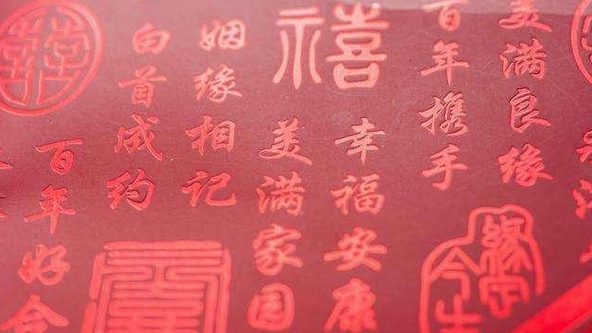 美满良缘
百年携手
禧
幸福安康
美满家园
姻缘相记
白首成约
百年好合
缘定今生